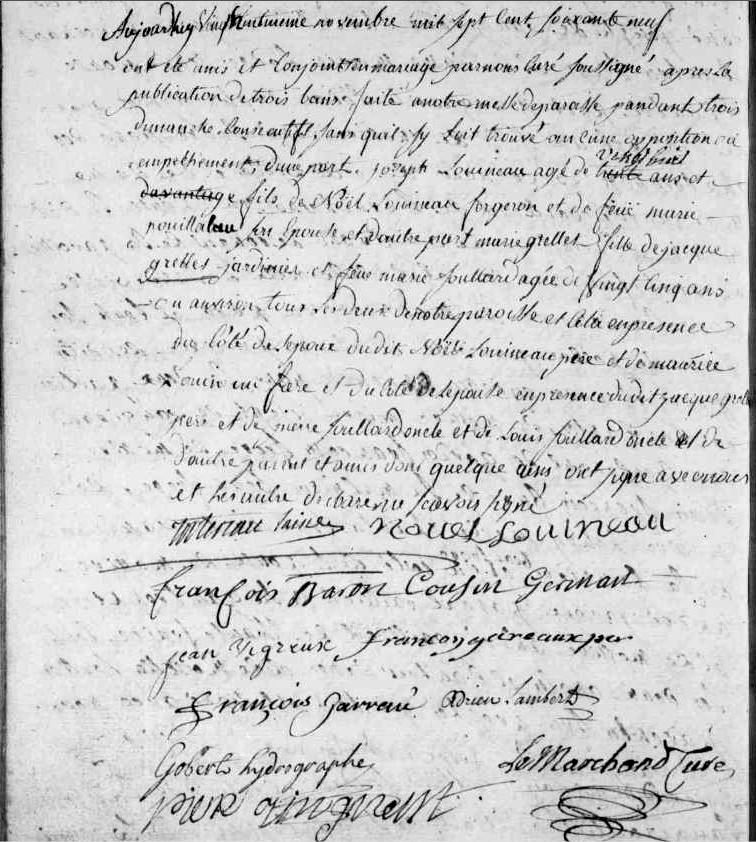 Aujourdhuy Vingthuitieme novembre mil sept Cent soixante neuf
ont été unis et Conjoint en mariage par nous Curé soussigné apres la
publication de trois bans faite a notre messe de paroisse pandant trois
dimanche Consecutifs sans quil sy soit trouvé aucune opposition ou
empeschement dune part joseph Louineau agé de vingt huit ans et
davantage fils de Noël Louineau forgeron et de feüe marie
pouillaleau son Epouse et dautre part marie grelles fille de jacque
grelles jardinier et feüe marie foullard agée de vingt Cinq ans
ou auviron tous les deux de notre paroisse et Cela en presence
du Côté de lepoux dudit Noël Louineau pere et de maurice
Louineau frere et du Coté de lepouse en presence dudit jacque grelle
pere et de foullard oncle et de Louis foullard oncle et de
dautre parent et amis dont quelque uns ont signe avec nous
et les autre declare ne scavoir signé
Nouel Louineau
françois Baron Cousin Germain
jean Vigreux
françois Jarreau Adrien Lambert
Gobert hydrographe LeMarchand Curé
pierre